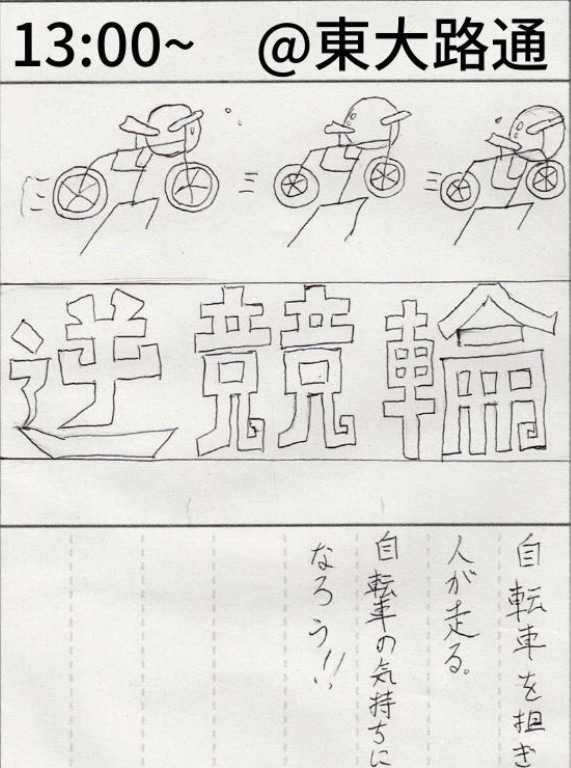 13:00~ @東大路通
逆競輪
自転車を担ぎ
人が走る。
自転車の気持ちに
なろう!!